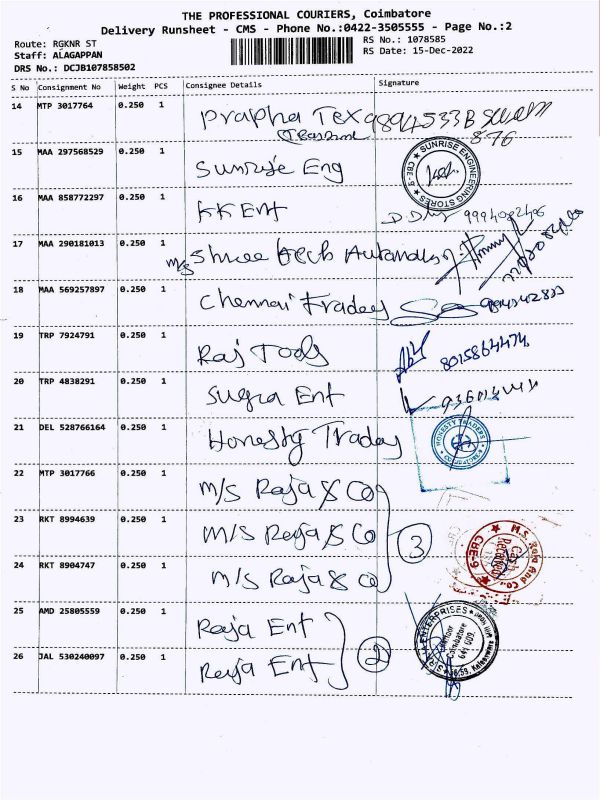 THE PROFESSIONAL COURIERS, Coimbatore
Delivery Runsheet - CMS - Phone No.:0422-3505555 - Page No.:2
Route: RGKNR ST
RS No.: 1078585
Staff: ALAGAPPAN
RS Date: 15-Dec-2022
DRS No.: DCJB107858502
S No Consignment No Weight PCS Consignee Details Signature
14 MTP 3017764 0.250 1 Prapha Tex
15 MAA 297568529 0.250 1 Sunrise Eng SUNRISE ENGINEERING STORES CBE-9
16 MAA 858772297 0.250 1 KK Ent
17 MAA 290181013 0.250 1 M/s Shree tech
18 MAA 569257897 0.250 1 Chennai Traders
19 TRP 7924791 0.250 1 Raj Tools 8015864474
20 TRP 4838291 0.250 1 Sugra Ent
21 DEL 528766164 0.250 1 Honesty Traders HONESTY TRADERS COIMBATORE
22 MTP 3017766 0.250 1 M/S Raja & Co
23 RKT 8994639 0.250 1 M/S Raja & Co 3 M.S. Raja And Co., Cash Received CBE-9
24 RKT 8904747 0.250 1 M/S Raja & Co
25 AMD 25805559 0.250 1 Raja Ent ENTERPRISES Coimbatore 641 009.
26 JAL 530240097 0.250 1 Raja Ent 2